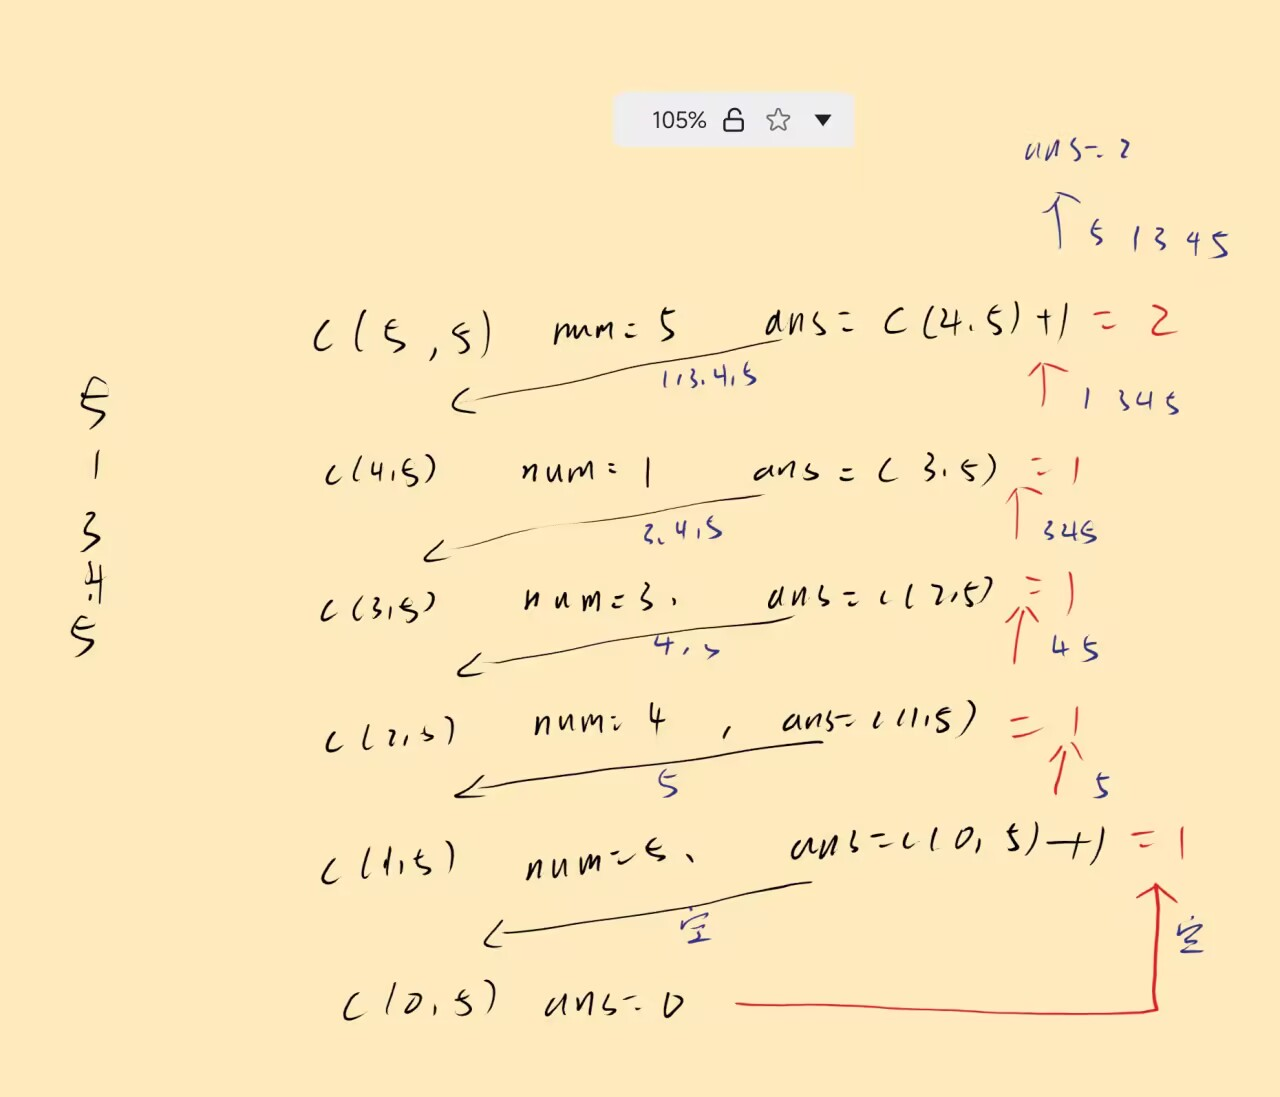 105%
ans=2
5 1345
C(5,5) num=5 ans=C(4.5)+1=2
1,3.4,5
1 345
5
1
3
4
5
C(4,5) num=1 ans=C(3.5)=1
3.4,5
345
C(3,5) num=3, ans=C(2,5)=1
4,5
45
C(2,5) num=4, ans=C(1,5)=1
5
5
C(1,5) num=5、 ans=C(0,5)+1=1
空
空
C(0,5) ans=0